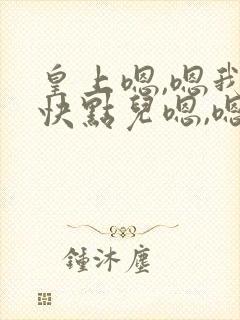 皇上嗯,嗯我
快點兒嗯,嗯
鍾沐塵